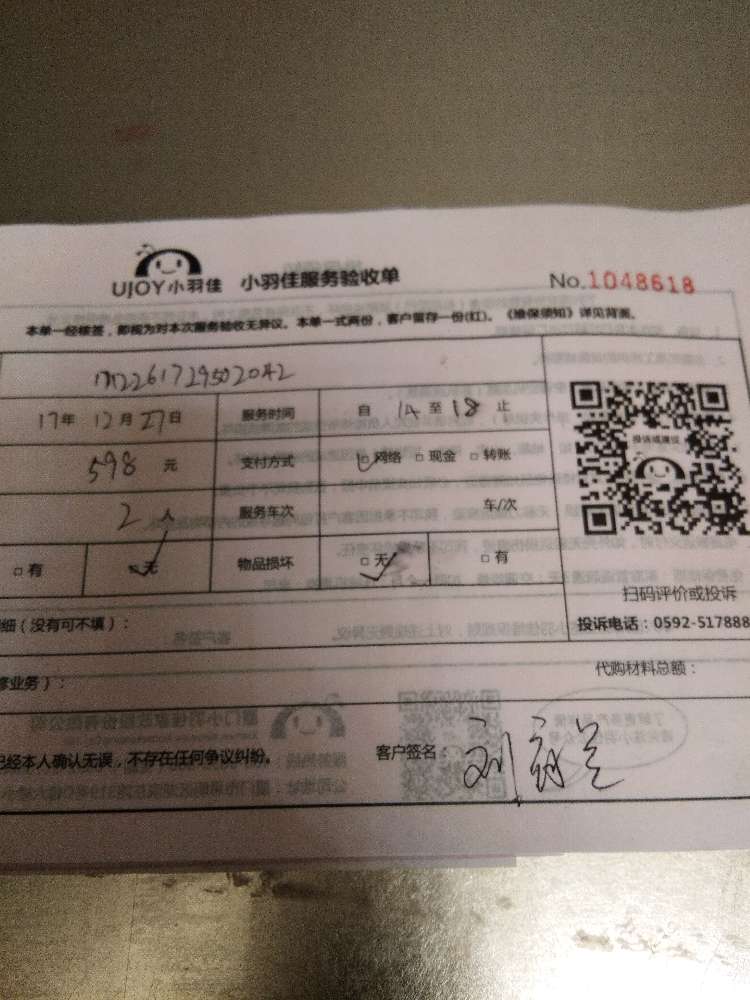 UJOY小羽佳 小羽佳服务验收单 No.1048618
本单一经核签，即视为对本次服务验收无异议。本单一式两份，客户留存一份(红)。《维保须知》详见背面。
17年 12月 27日 服务时间 自 14 至 18 止
598 元 支付方式 □网络 □现金 □转账
2 人 服务车次 车/次
□有 □无 物品损坏 □无 □有
投诉或建议
扫码评价或投诉
细（没有可不填）： 投诉电话：0592-517888
修业务）： 代购材料总额：
已经本人确认无误，不存在任何争议纠纷。 客户签名：刘